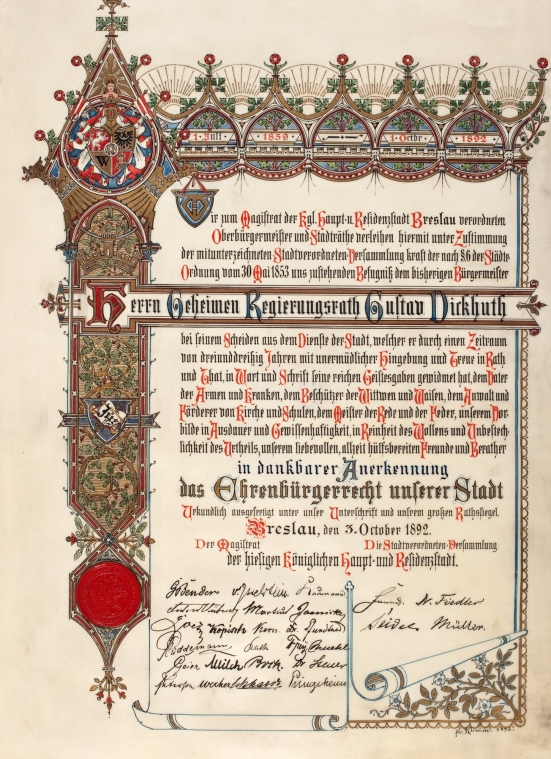 1·Juli 1859 1·Octbr· 1892
Wir zum Magistrat der Kgl. Haupt-u. Residenzstadt Breslau verordneten
Oberbürgermeister und Stadträthe verleihen hiermit unter Zustimmung
der mitunterzeichneten Stadtverordneten-Versammlung kraft der nach §6 der Städte-
Ordnung vom 30 Mai 1853 uns zustehenden Befugniß dem bisherigen Bürgermeister
Herrn Geheimen Regierungsrath Gustav Dickhuth
bei seinem Scheiden aus dem Dienste der Stadt, welcher er durch einen Zeitraum
von dreiunddreißig Jahren mit unermüdlicher Hingebung und Treue in Rath
und That, in Wort und Schrift seine reichen Geistesgaben gewidmet hat, dem Vater
der Armen und Kranken, dem Beschützer der Wittwen und Waisen, dem Anwalt und
Förderer von Kirche und Schulen, dem Meister der Rede und der Feder, unserem Vor-
bilde in Ausdauer und Gewissenhaftigkeit, in Reinheit des Wollens und Unbestech-
lichkeit des Urtheils, unserem liebevollen, allzeit hülfsbereiten Freunde und Berather
in dankbarer Anerkennung
das Ehrenbürgerrecht unserer Stadt
Urkundlich ausgefertigt unter unser Unterschrift und unsrem großen Rathssiegel.
Breslau, den 3. October 1892.
Der Magistrat Die Stadtverordneten-Versammlung
der hiesigen Königlichen Haupt- und Residenzstadt.
GBender
Martius
Freund. W. Fiedler
Kopisch Korn
Seidel Müller.
Milch Bock
Pringsheim
1892